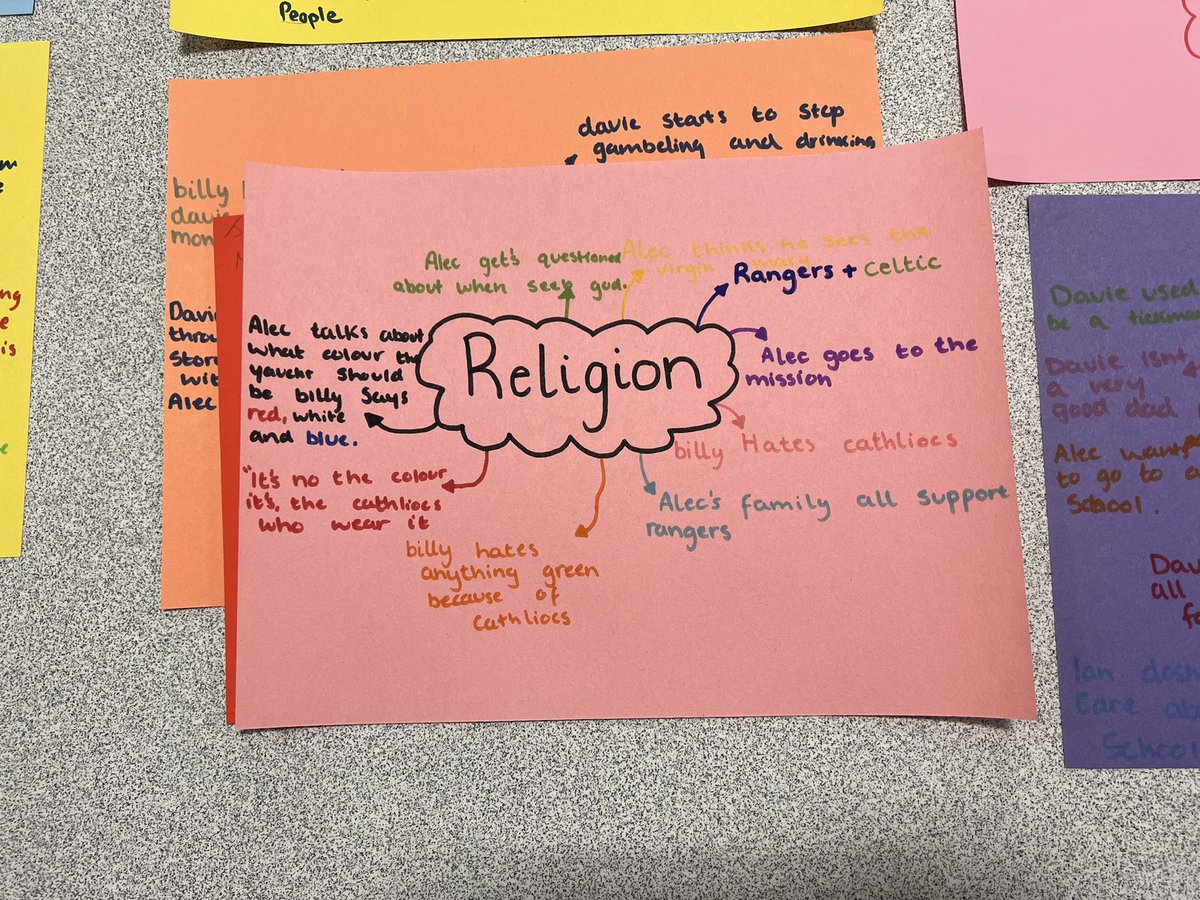 People
davie starts to stop
gambeling and drinking
billy
davie
mon
Davi
throu
Stor
wit
Alec
Religion
Alec get's questioned
about when seek god.
Alec thinks he sees the
virgin mary.
Rangers + Celtic
Alec goes to the
mission
billy Hates cathliocs
Alec's family all support
rangers
billy hates
anything green
because of
cathliocs
"It's no the colour
it's, the cathliocs
who wear it
Alec talks about
what colour the
yaucht should
be billy says
red, white
and blue.
Davie used
be a tickm
Davie isnt
a very
good dad
Alec want
to go to a
School.
Dav
all
fo
Ian dosn
Care ab
School
ng
e
is